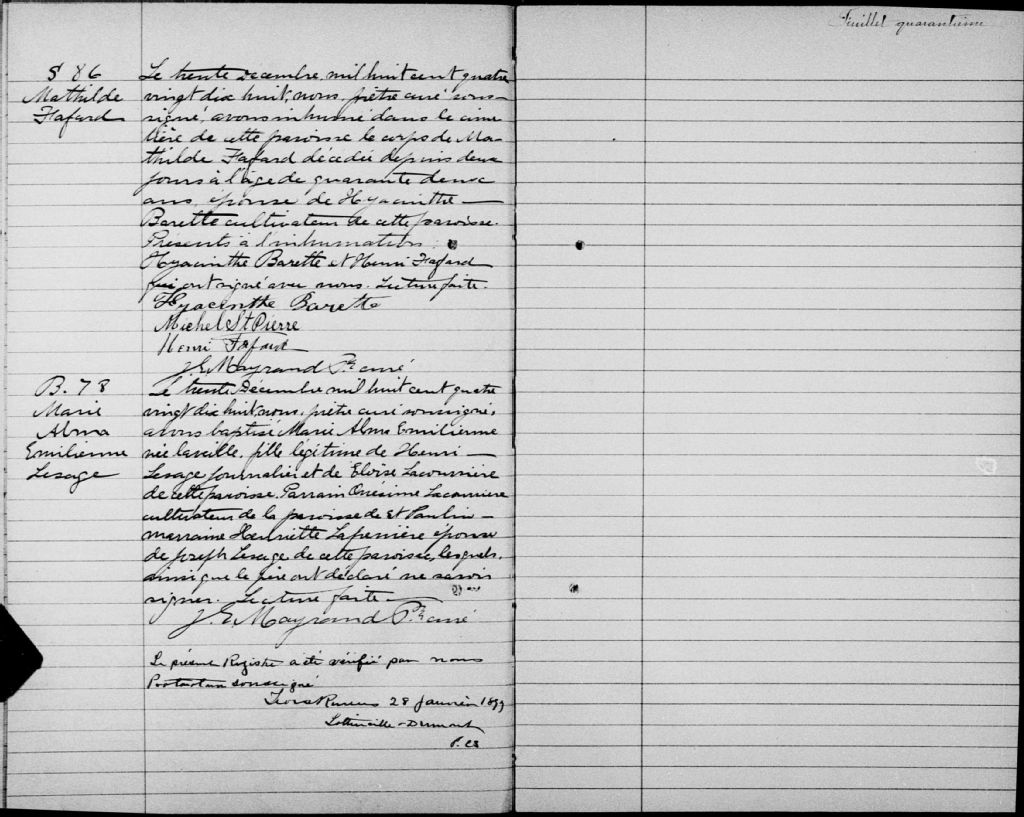 S 86
Mathilde
Fafard
Le trente decembre mil huit cent quatre
vingt dix huit, nous, prêtre curé sous-
signé, avons inhumé dans le cime
tière de cette paroisse le corps de Ma-
thilde Fafard décédée depuis deux
jours à l'âge de quarante deux
ans, épouse de Hyacinthe
Barette cultivateur de cette paroisse.
Présents à l'inhumation :
Hyacinthe Barette et Henri Fafard
qui ont signé avec nous. Lecture faite.
Hyacinthe Barette
Michel St Pierre
Henri Fafard
J. E. Mayrand Ptr curé
B. 78
Marie
Alma
Emilienne
Lesage
Le trente Décembre mil huit cent quatre
vingt dix huit, nous, prêtre curé soussigné,
avons baptisé Marie Alma Emilienne
née la veille, fille légitime de Henri
Lesage journalier et de Eloïse Lacourcière
de cette paroisse. Parrain Onésime Lacourciere
cultivateur de la paroisse de St Paulin
marraine Henriette Laferrière épouse
de Joseph Lesage de cette paroisse, lesquels,
ainsi que le père ont déclaré ne savoir
signer. Lecture faite
J. E. Mayrand Ptr curé
Le présent Registre a été vérifié par nous
soussigné
Trois Rivieres 28 Janvier 1899
Feuillet quarantième